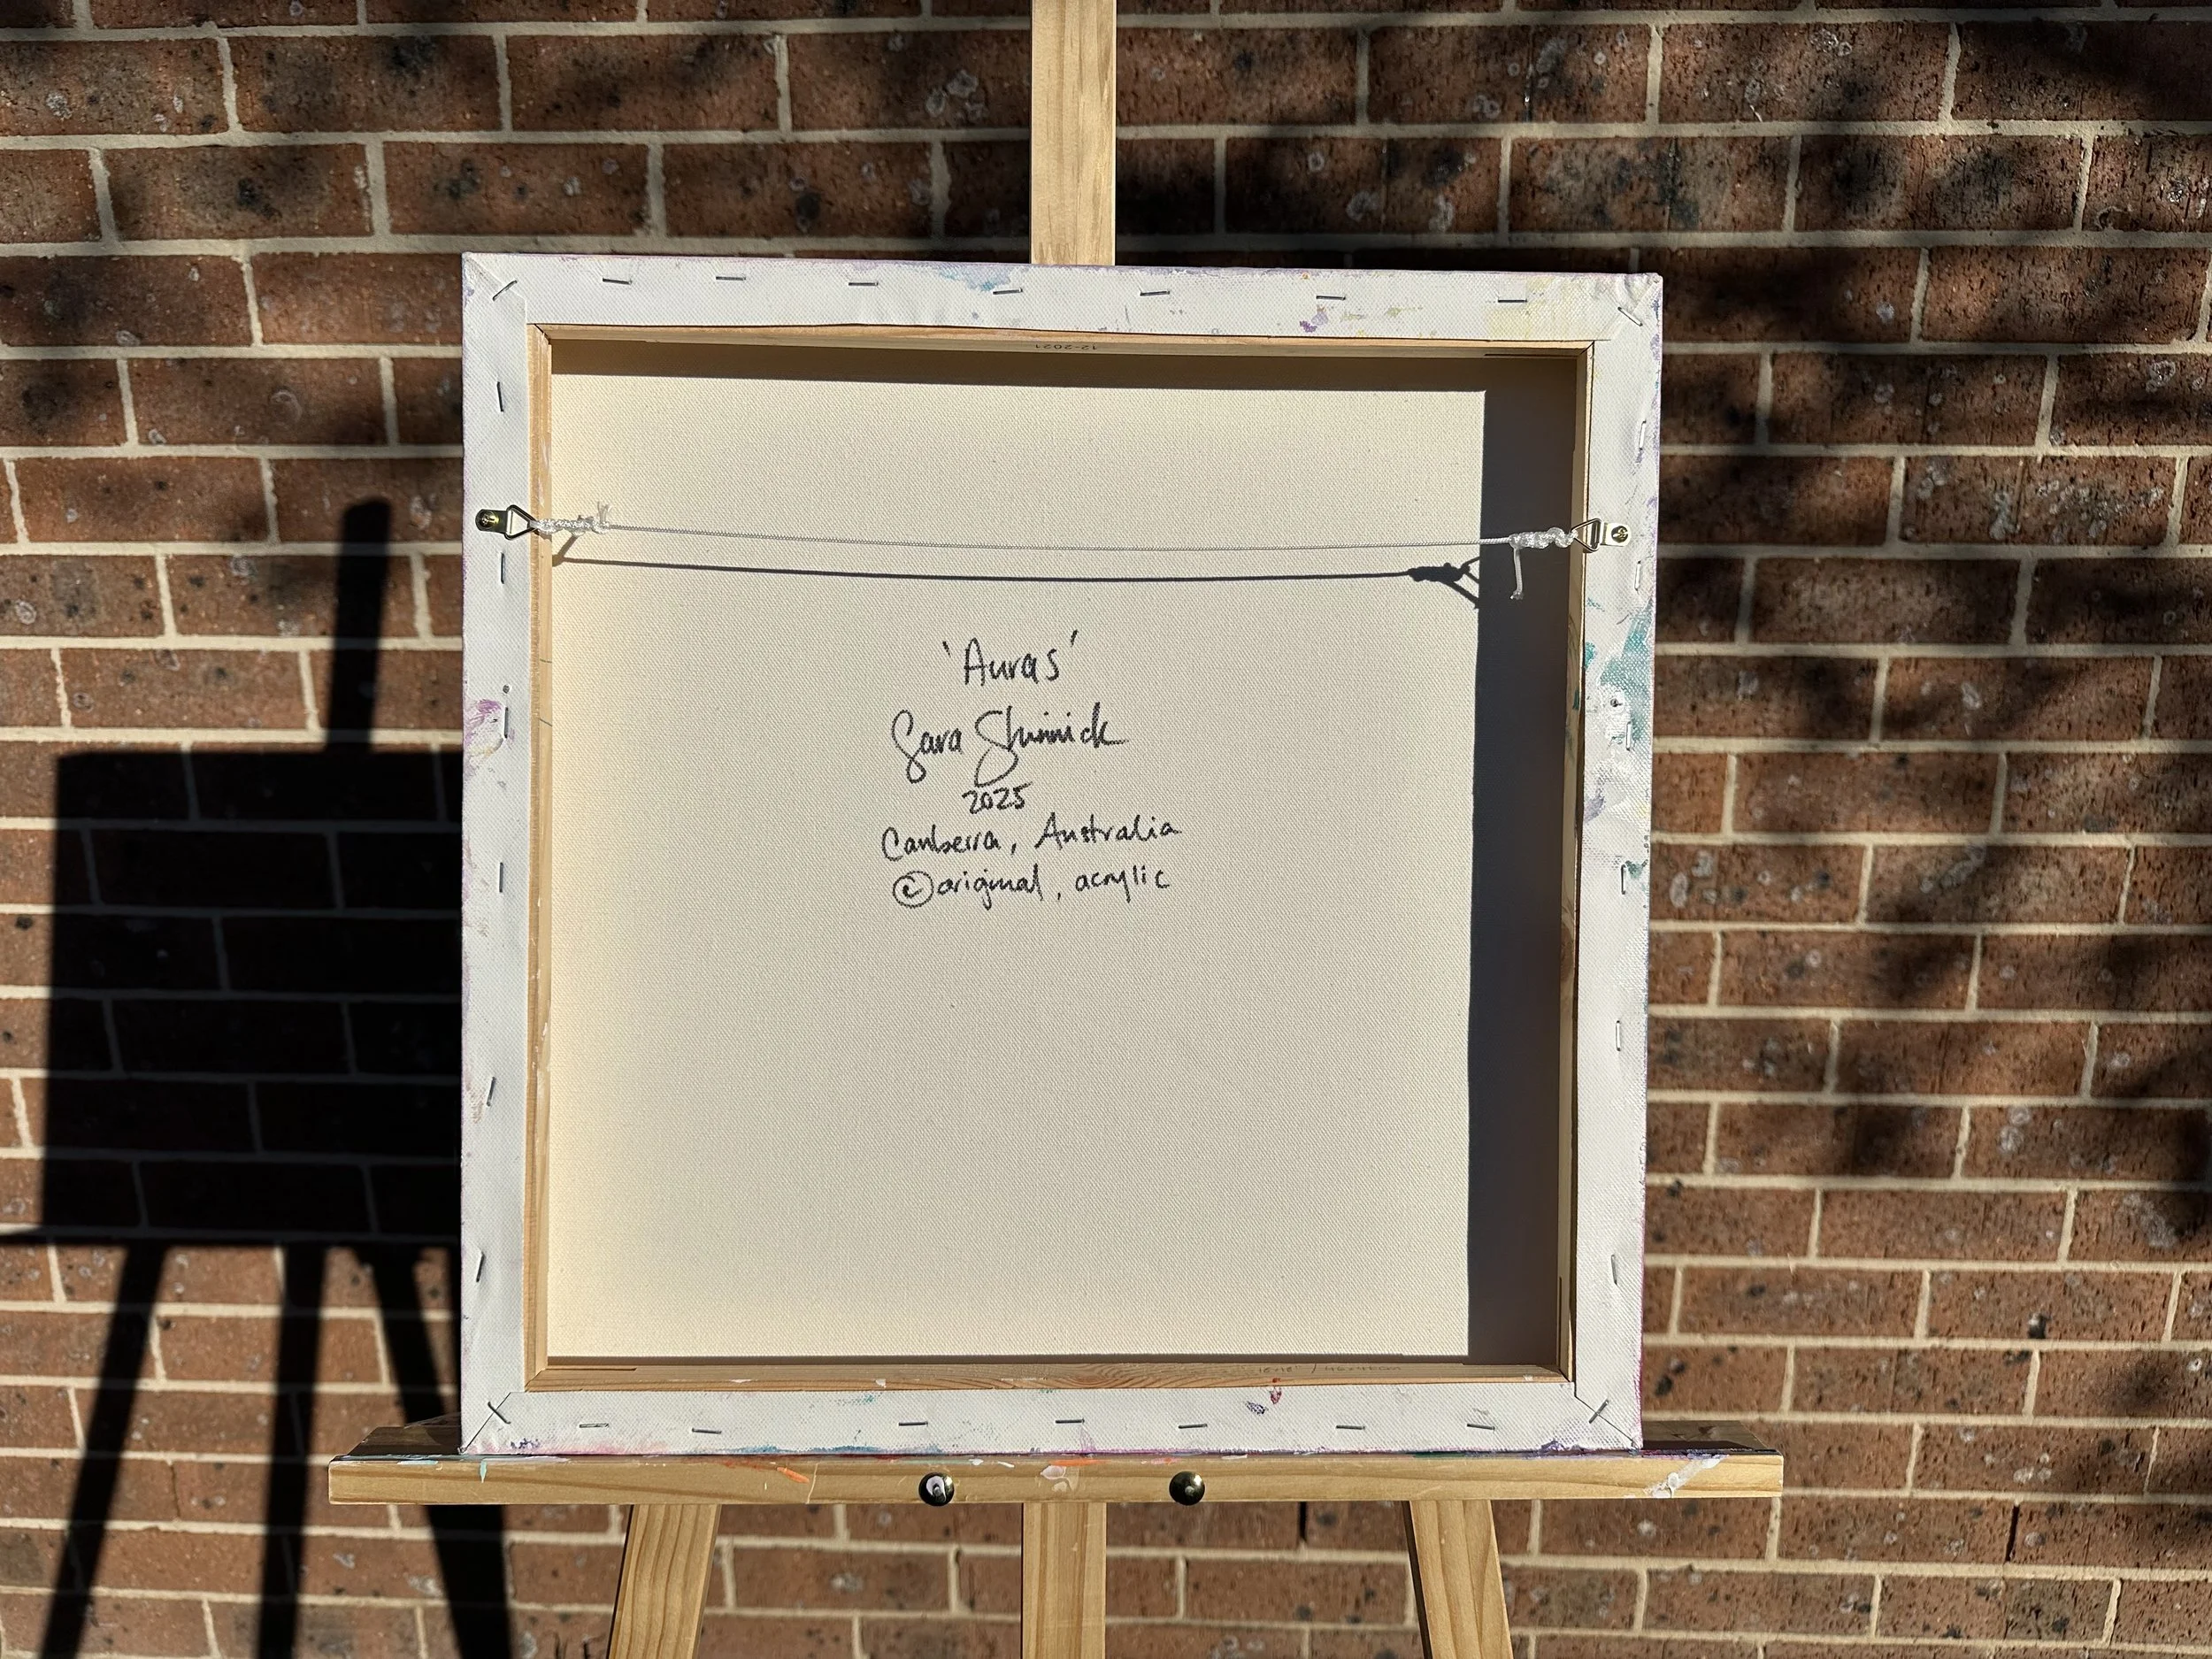 12-2021
'Auras'
Sara Shinnick
2025
Canberra, Australia
© original, acrylic